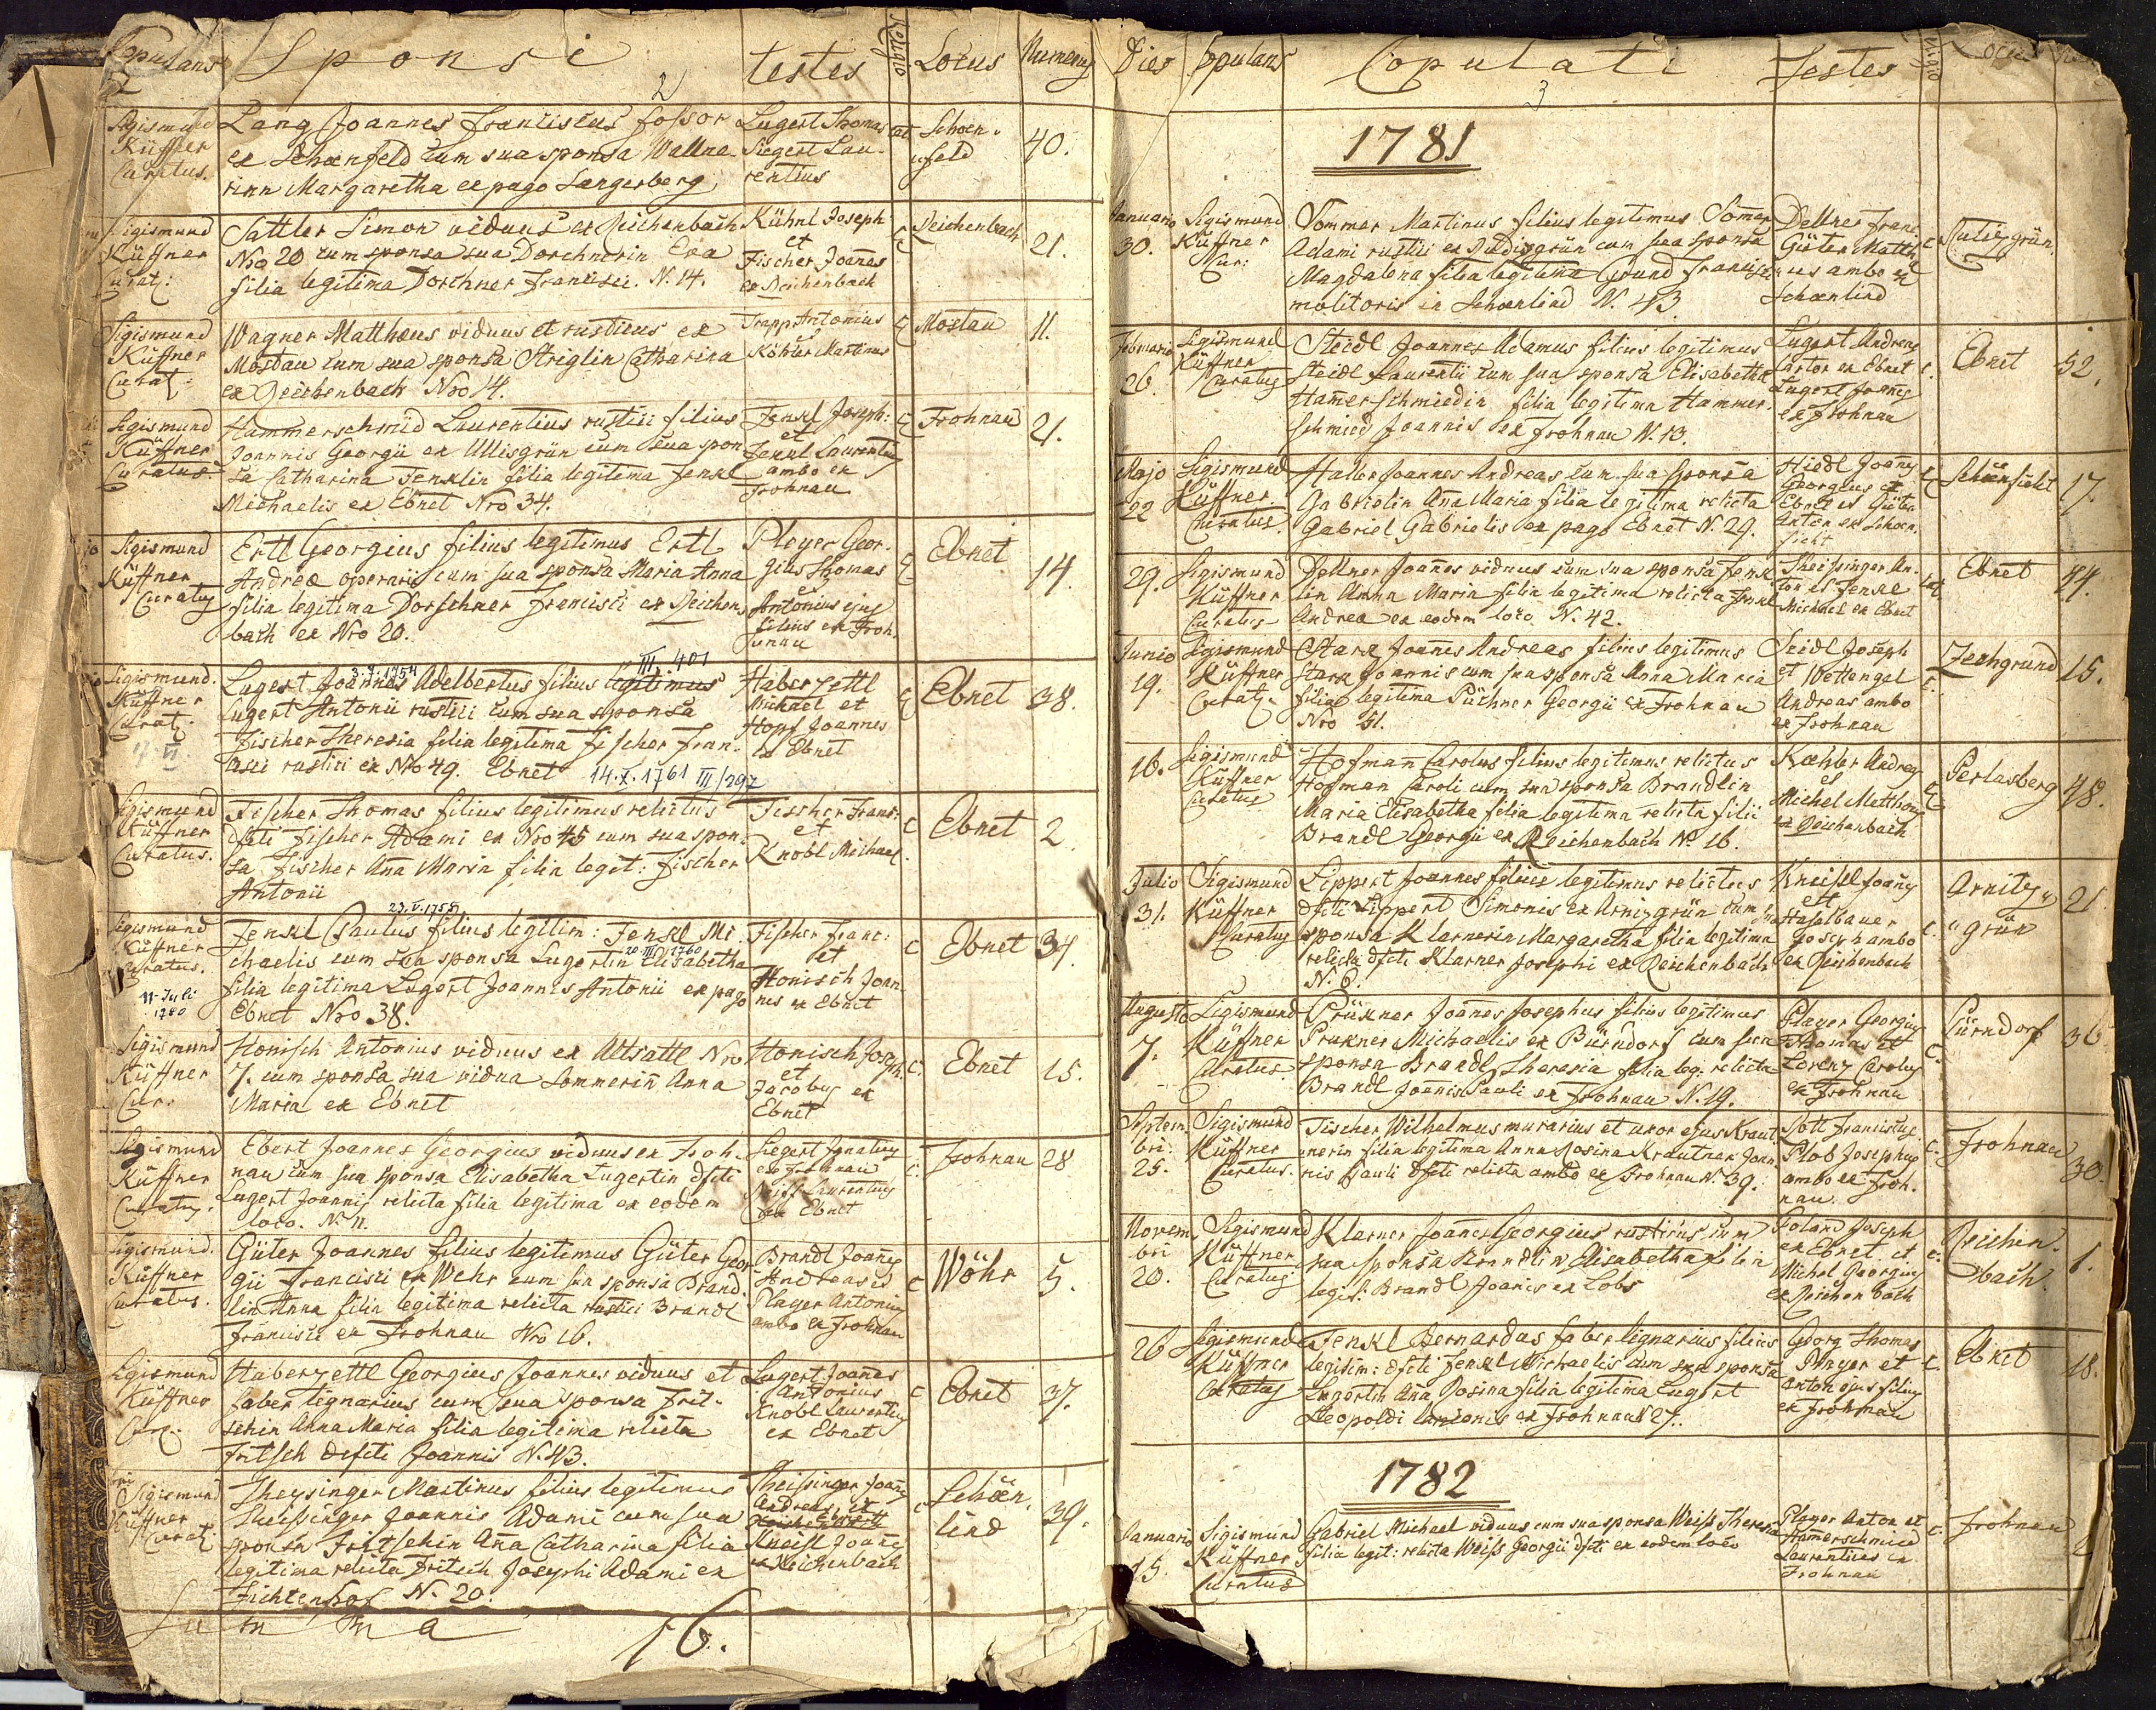 Copulans
Sponsi
testes
Religio
Locus
Numerus
2
Sigismund
Küffner
Curatus.
Lang Joannes Franciscus fossor
ex Schoenfeld cum sua sponsa Wallne-
rinn Margaretha ex pago Langerberg
Lugert Thomas
Siegert Lau-
rentius
cat
Schoen-
feld
40.
Sigismund
Küffner
Curat:
Sattler Simon viduus ex Reichenbach
Nro 20 cum sponsa sua Dorschnerin Eva
filia legitima Dorschner Francisci. N. 14.
Kühnl Joseph
et
Fischer Joannes
ex Reichenbach
C
Reichenbach
21.
Sigismund
Küffner
Curat:
Wagner Matthæus viduus et rusticus ex
Mostau cum sua sponsa Striglin Catharina
ex Reichenbach Nro 14.
Trapp Antonius
et
Köhler Martinus
C
Mostau
11.
Sigismund
Küffner
Curatus.
Hammerschmid Laurentius rustici filius
Joannis Georgii ex Ullisgrün cum sua spon
sa Catharina Fenklin filia legitima Fenkl
Michaelis ex Ebnet Nro 34.
Fenkl Joseph:
et
Fenkl Laurentius
ambo ex
Frohnau
C
Frohnau
21.
Sigismund
Küffner
Curatus
Ertl Georgius filius legitimus Ertl
Andreæ operarii cum sua sponsa Maria Anna
filia legitima Dorschner Francisci ex Reichen
bach ex Nro 20.
Ployer Geor-
gius Thomas
et
Antonius ejus
filius ex Froh-
nau
C
Ebnet
14.
III. 401
3.9.1754
Sigismund.
Küffner
Curat:
4. VI.
Lugert Joannes Adelbertus filius legitimus
Lugert Antonii rustici cum sua sponsa
Fischer Theresia filia legitima Fischer Fran-
cisci rustici ex Nro 49. Ebnet
14.X.1761 III/297
Haberzettl
Michael et
Hopf Joannes
ex Ebnet
C
Ebnet
38.
Sigismund
Küffner
Curatus.
Fischer Thomas filius legitimus relictus
dfcti Fischer Adami ex Nro 45 cum sua spon-
sa Fischer Aña Maria filia legit: Fischer
Antonii
Fischer Franc:
et
Knobl Michael.
C
Ebnet
2.
23.V.1758
Sigismund
Küffner
Curatus.
11. Juli
1780
Fenkl Paulus filius legitim: Fenkl Mi-
chaelis cum sua sponsa Lugertin Elisabetha
20.III.1760
filia legitima Lugert Joannis Antonii ex pago
Ebnet Nro 38.
Fischer Franc:
et
Honisch Joan-
nes ex Ebnet
C
Ebnet
34.
Sigismund
Küffner
Cur:
Honisch Antonius viduus ex Altsattl Nro
7. cum sponsa sua vidua Sommeriñ Anna
Maria ex Ebnet
Honisch Joseph.
et
Jacobus ex
Ebnet
C.
Ebnet
15.
Sigismund
Küffner
Curatus.
Ebert Joannes Georgius viduus ex Froh-
nau cum sua sponsa Elisabetha Lugertin dfcti
Lugert Joannis relicta filia legitima ex eodem
loco. N. 11.
Siegert Ignatius
ex Frohnau
Laurentius
ex Ebnet
C.
Frohnau
28
Sigismund.
Küffner
Curatus.
Güter Joannes filius legitimus Güter Geor
gii Francisci ex Wehr cum sua sponsa Brand-
lin Anna filia legitima relicta rustici Brandl
Francisci ex Frohnau Nro 16.
Brandl Joañes
Andreas et
Player Antonius
ambo ex Frohnau
C
Wöhr
5.
Sigismund
Küffner
Cur:
Haberzettl Georgius Joannes viduus et
faber lignarius cum sua sponsa Frit-
schin Anna Maria filia legitima relicta
Fritsch defcti Joannis N. 43.
Lugert Joañes
Antonius
Knobl Laurentius
ex Ebnet
C
Ebnet
37.
Sigismund
Küffner
Curat:
Theysinger Martinus filius legitimus
Theissinger Joannis Adami cum sua
sponsa Fritschin Aña Catharina filia
legitima relicta Fritsch Josephi Adami ex
Fichtenhof N. 20.
Theissinger Joañes
Andreas et
Kneisl Joañes
ex Reichenbach
C
Schöen-
lind
39.
Summa
16.
Dies
Copulans
Copulati
Testes
Religio
Locus
3
1781
Januario
30.
Sigismund
Küffner
Cur:
Sommer Martinus filius legitimus Somer
Adami rustici ex Rudisgrün cum sua sponsa
Magdalena filia legitima Grund Francisci
molitoris in Schoenlind N. 43.
Dellner Franc:
Güter Matth-
æus ambo ex
Schoenlind
C.
Februario
26.
Sigismund
Küffner
Curatus
Steidl Joannes Adamus filius legitimus
Steidl Laurentii cum sua sponsa Elisabetha
Hamerschmiedin filia legitima Hammer-
schmied Joannis ex Frohnau N. 13.
Lugert Andreas
sartor ex Ebnet
Lugert Joañes
ex Frohnau
C.
Ebnet
52.
Majo
22
Sigismund
Küffner
Curatus
Haller Joannes Andreas cum sua sponsa
Gabrielin Aña Maria filia legitima relicta
Gabriel Gabrielis ex pago Ebnet N. 29.
Hiedl Joañes
Georgius ex
Ebnet et Güter
Anton ex Schoen-
ficht
C
Schöenficht
17.
29.
Sigismund
Küffner
Curatus
Dellner Joañes viduus cum sua sponsa Fenk
lin Anna Maria filia legitima relicta Fenkl
Andreæ ex eodem loco N. 42.
Theissinger An-
ton et Fenkl
Michael ex Ebnet
cat.
Ebnet
44.
Junio
19.
Sigismund
Küffner
Curat:
Stark Joañes Andreas filius legitimus
Stark Joannis cum sua sponsa Anna Maria
filia legitima Püchner Georgii ex Frohnau
Nro 51.
Seidl Joseph
et Wettengel
Andreas ambo
ex Frohnau
C.
Zechgrund
15.
16.
Sigismund
Küffner
Curatus
Hofmañ Carolus filius legitimus relictus
Hofman Caroli cum sua sponsa Brandlin
Maria Elisabetha filia legitima relicta filii
Brandl Georgii ex Reichenbach N. 16.
Kœhler Andreas
et
Michel Matthæus
ex Reichenbach
C
Perlasberg
48.
Julio
31.
Sigismund
Küffner
Curatus
Lippert Joannes filius legitimus relictus
dfcti Lippert Simonis ex Arnizgrün cum sua
sponsa Klarnerin Margaretha filia legitima
relicta dfcti Klarner Josephi ex Reichenbach
N. 6.
Kneissl Joañes
et
Haselbauer
Joseph ambo
ex Reichenbach
C.
Arnitz-
grün
21
Augusto
7.
Sigismund
Küffner
Curatus.
Prükner Joañes Josephus filius legitimus
Prukner Michaelis ex Pürndorf cum sua
sponsa Brandl Theresia filia leg: relicta
Brandl Joanis Pauli ex Frohnau N. 19.
Player Georgius
Thomas et
Lorenz Carolus
ex Frohnau
C.
Pürndorf
36
Septem-
bri:
25.
Sigismund
Küffner
Curatus.
Fischer Wilhelmus murarius et uxor ejus Kraut-
nerin filia legitima Anna Rosina Krautner Joan-
nis Pauli dfcti relicta ambo ex Frohnau N. 39.
Sott Franciscus
Plob Josephus
ambo ex Froh-
nau.
C.
Frohnau
30.
Novem-
bri
20.
Sigismund
Küffner
Curatus
Klarner Joañes Georgius rusticus cum
sua sponsa Brandlin Elisabetha filia
legit: Brandl Joanis ex Lobs
Joseph
ex Ebnet et
Michel Georgius
ex Reichenbach
C.
Reichen-
bach.
1.
26
Sigismund
Küffner
Curatus
Fenkl Bernardus faber lignarius filius
legitim: dfcti Fenkl Michaelis cum sua sponsa
Lugertin Aña Rosina filia legitima Lugert
Leopoldi Antonii ex Frohnau N 27.
Georg Thomas
Player et
Anton ejus filius
ex Frohnau
C.
Ebnet
18.
1782
Januario
15.
Sigismund
Küffner
Curatus
Gabriel Michael viduus cum sua sponsa Weiss Theresia
filia legit: relicta Weiss Georgii dfcti ex eodem loco
Player Anton et
Hamerschmied
Laurentius ex
Frohnau
C.
Frohnau
2